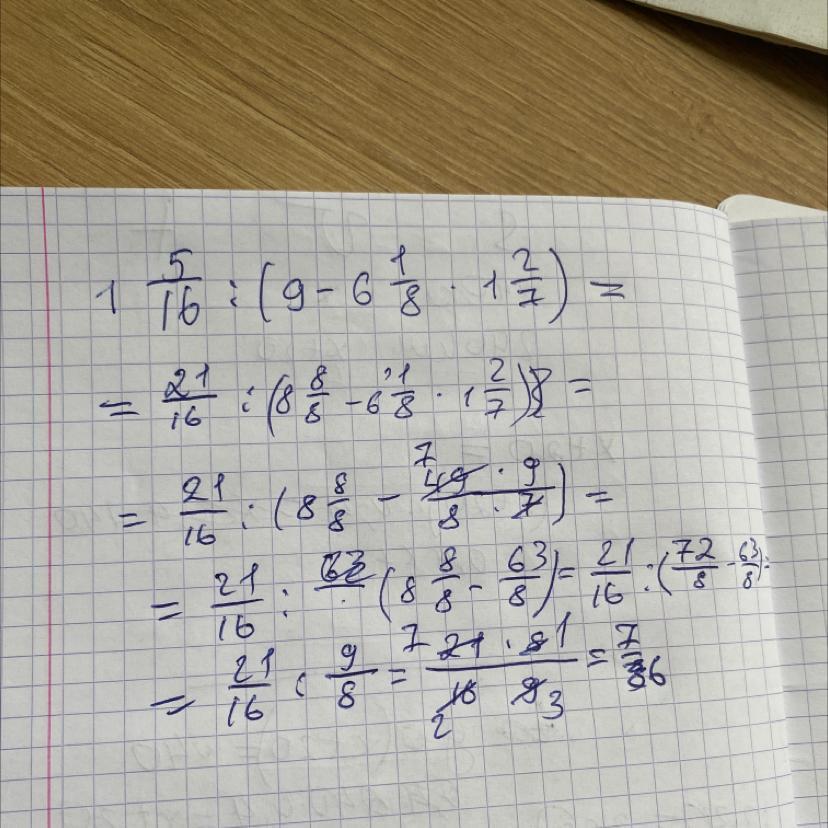 1 5/16 : (9 - 6 1/8 · 1 2/7) =
= 21/16 : (8 8/8 - 6 1/8 · 1 2/7) =
= 21/16 : (8 8/8 - 7 49 · 9 / 8 · 7) =
= 21/16 : 63 (8 8/8 - 63/8) = 21/16 : (72/8 - 63/8) =
= 21/16 : 9/8 = 7 21 · 8 1 / 2 16 9 3 = 7/6